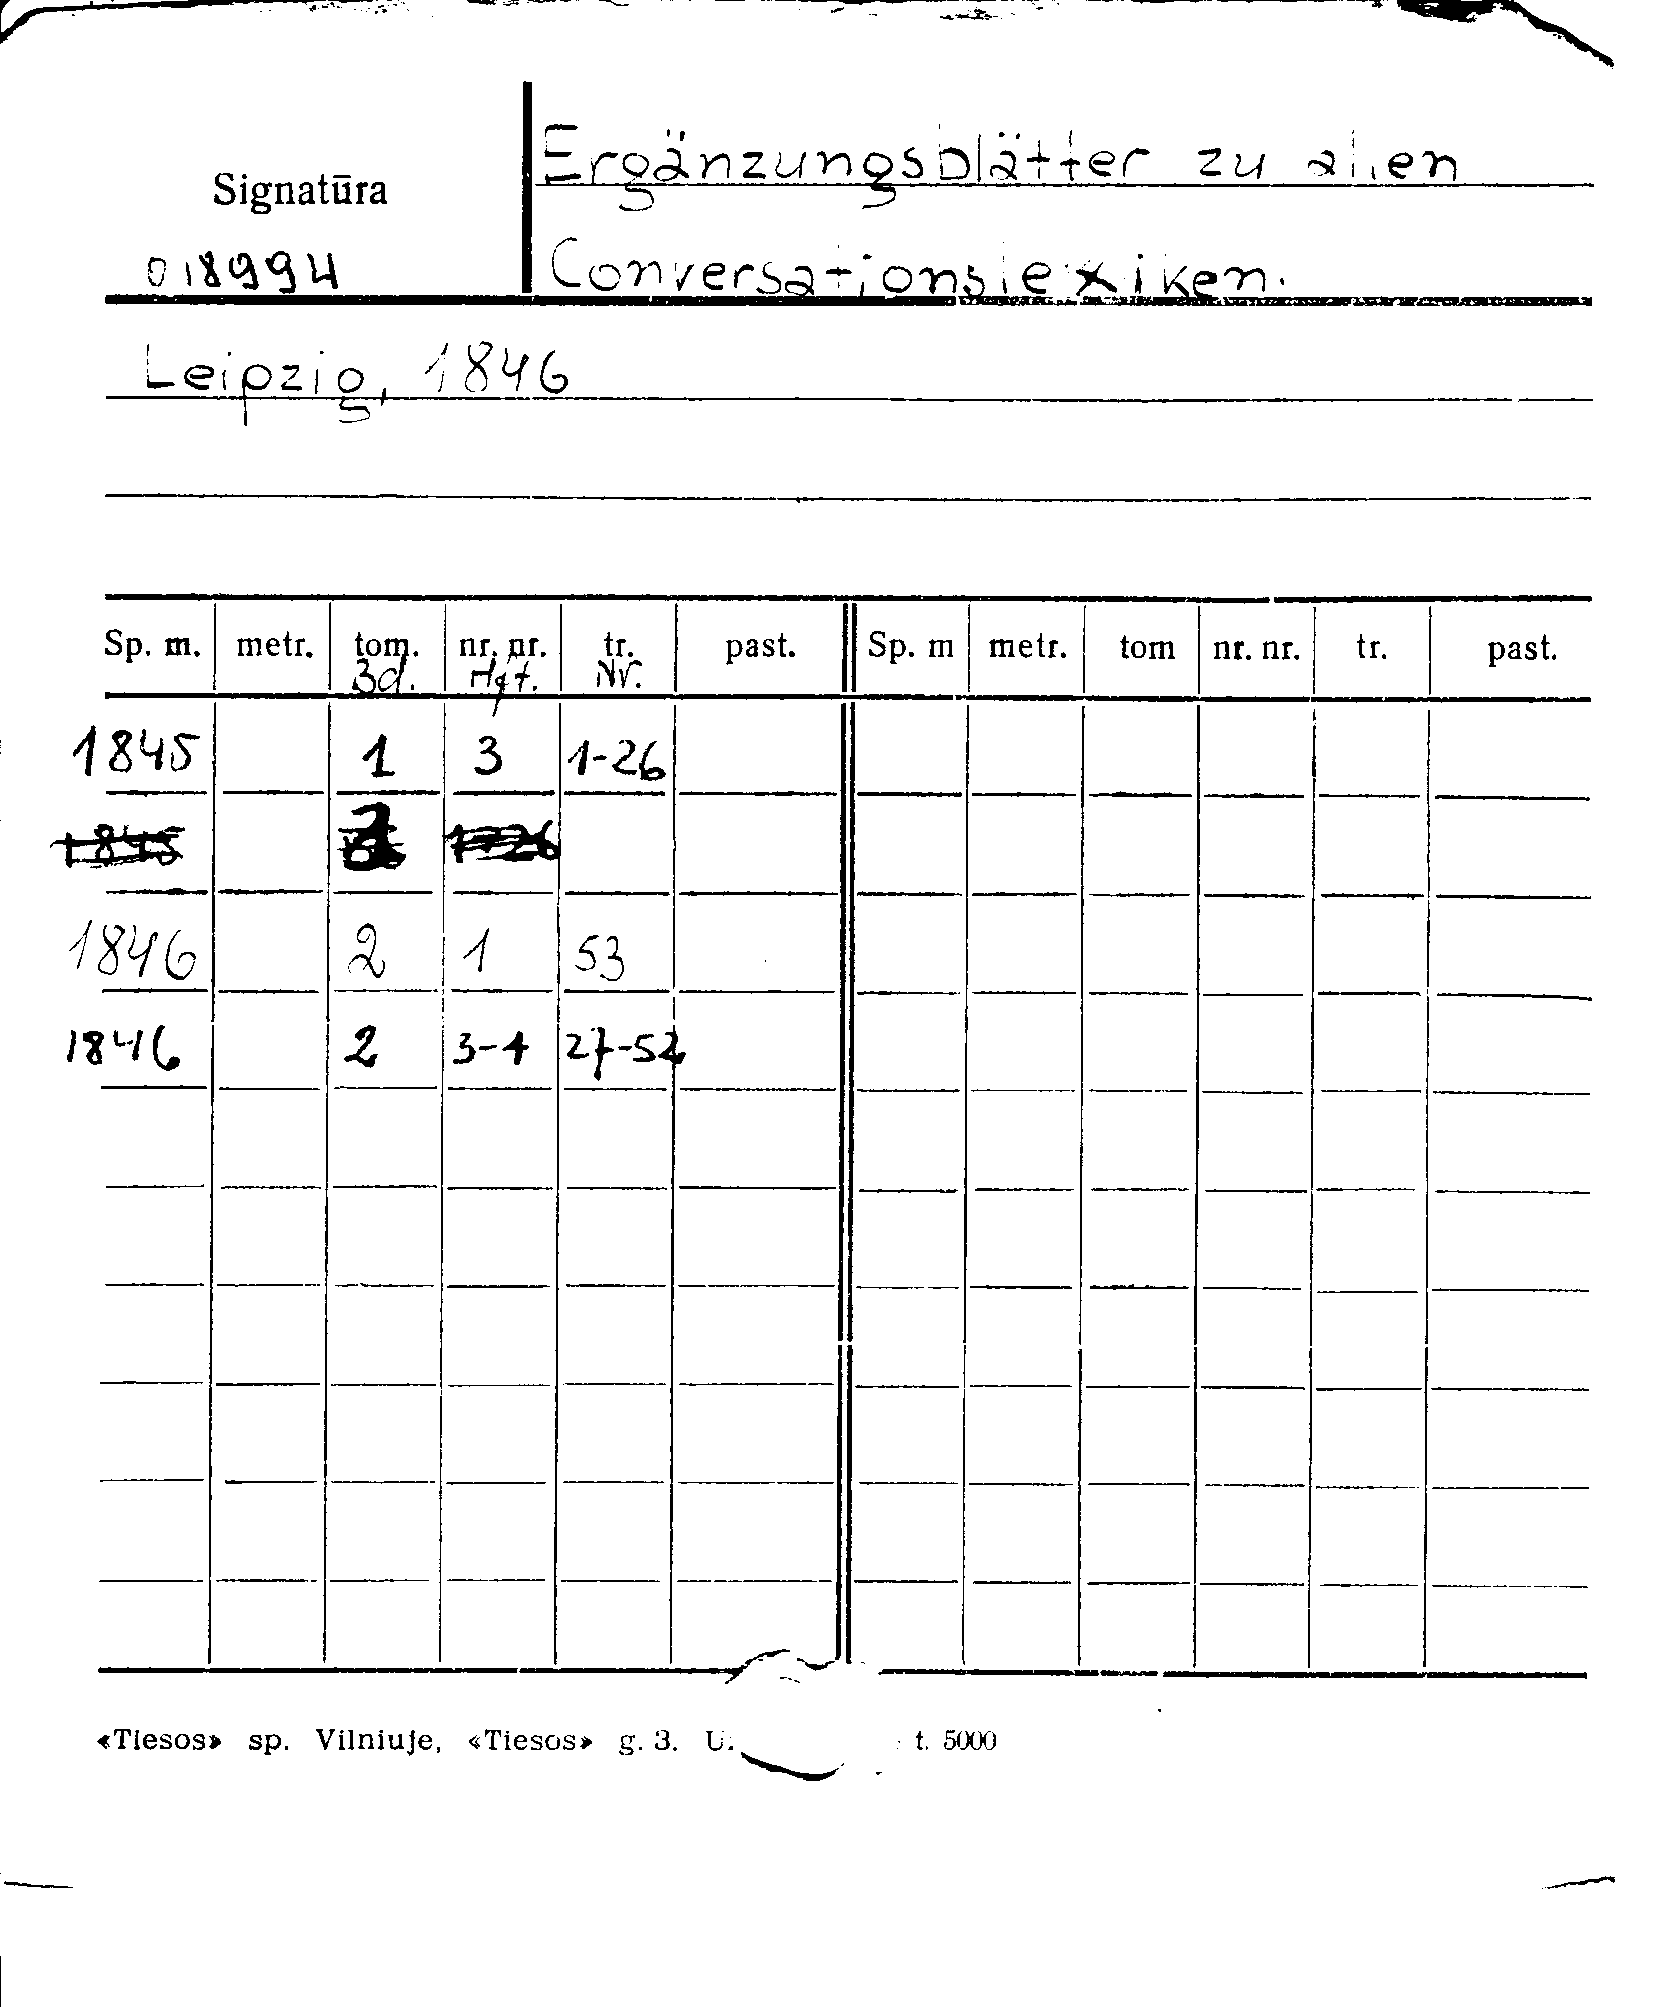 Signatūra
018994
Ergänzungsblätter zu allen
Conversationslexiken.
Leipzig, 1846
Sp. m. metr. tom. nr. nr. tr. past. Sp. m metr. tom nr. nr. tr. past.
Bd. Hft. Nr.
1845 1 3 1-26
1845 1-26
1846 2 1 53
1846 2 3-4 27-52
«Tiesos» sp. Vilniuje, «Tiesos» g. 3. U. t. 5000